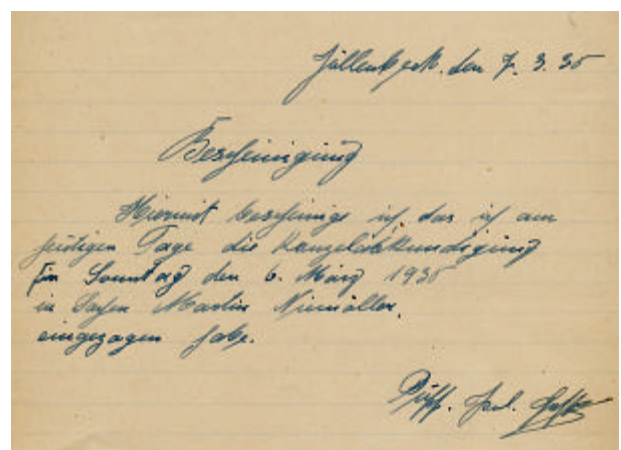 Jöllenbeck. den 7. 3. 35
Bescheinigung
Hiermit bescheinige ich, das ich am
heutigen Tage die Kanzelabkündigung
für Sonntag den 6. März 1935
in Sachen Martin Niemöller.
eingezogen habe.